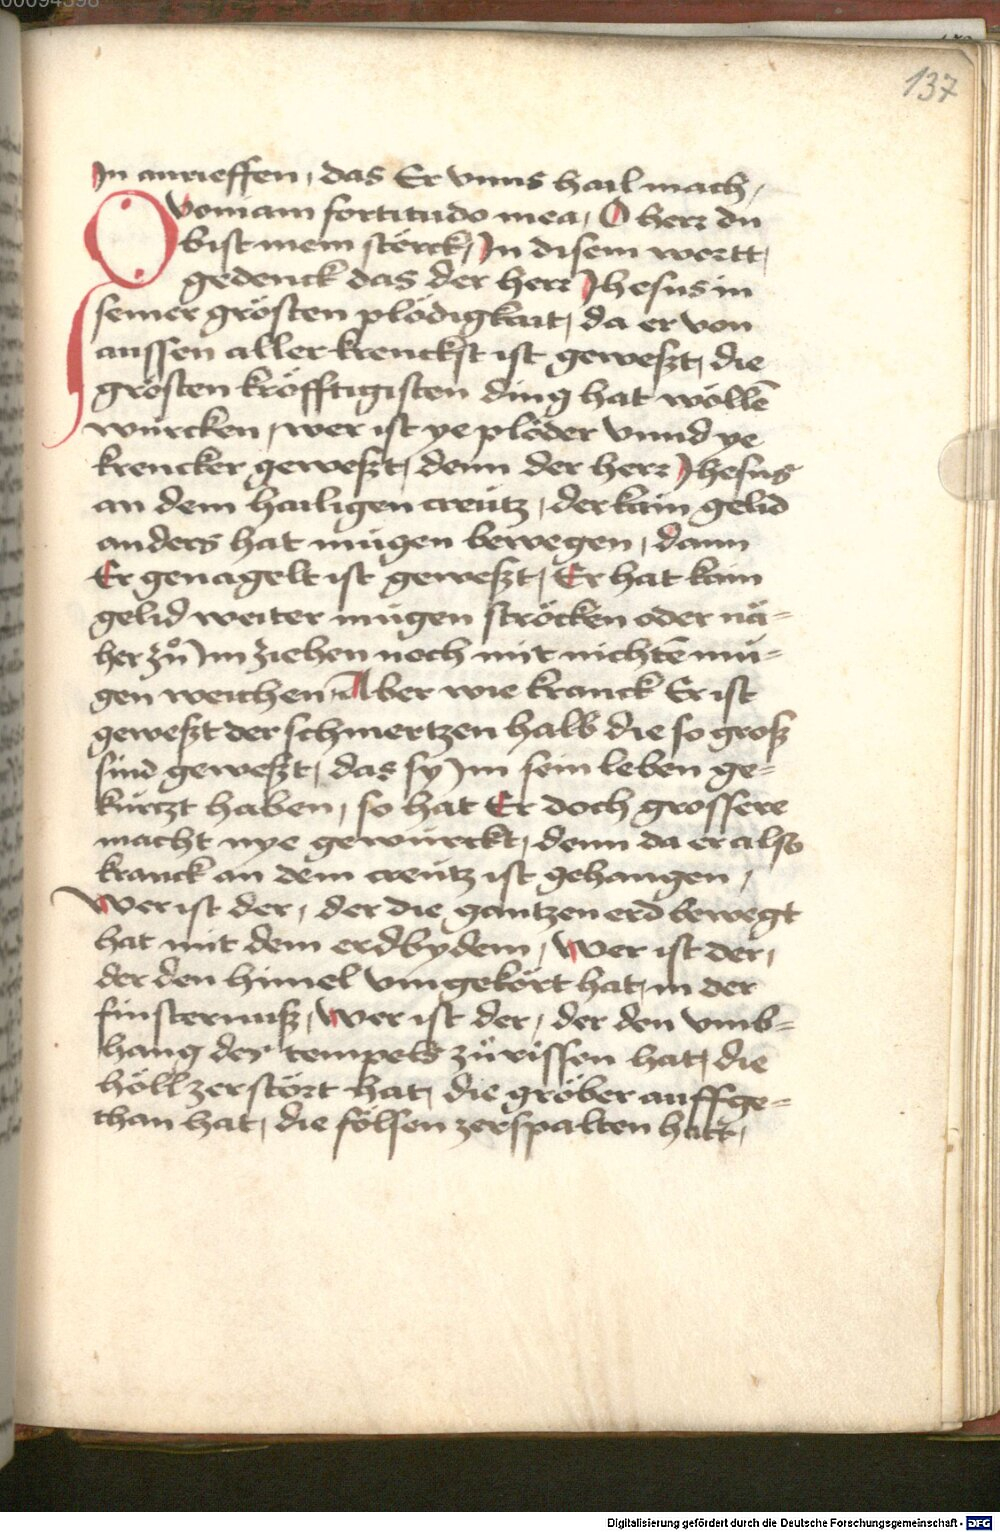 137
In anrieffen, das Er vnns hail mach,
Quoniam fortitudo mea, O herr du
bist mein störck, In disem wortt,
gedenck das der herr Jhesus in
seiner grösten plödigkait, da er von
aussen aller krenckst ist geweßt, die
grösten kröfftigisten ding hat wöllē
würcken, wer ist ye plöder vnnd ye
krencker geweßt, denn der herr Jhesus
an dem hailigen creütz, der kain gelid
anders hat mügen bewegen, dann
Er genagelt ist geweßt, Er hat kain
gelid weiter mügen ströcken oder nä-
her zů Im ziehen noch mit nichtē mü-
gen weichen, Aber wie kranck Er ist
geweßt der schmertzen halb die so groß
sind geweßt, das sy Im sein leben ge-
kürtzt haben, so hat Er doch grossere
macht nye gewürckt, denn da er also
kranck an dem creütz ist gehangen,
Wer ist der, der die gantzen erd bewegt
hat mit dem erdbydem, Wer ist der,
der den himel vmgekört hat, in der
finsternuß, Wer ist der, der den vmb-
hang des tempels zůrissen hat, die
höll zerstört hat, die gröber auffge-
than hat, die fölsen zerspalten hatt,
Digitalisierung gefördert durch die Deutsche Forschungsgemeinschaft - DFG